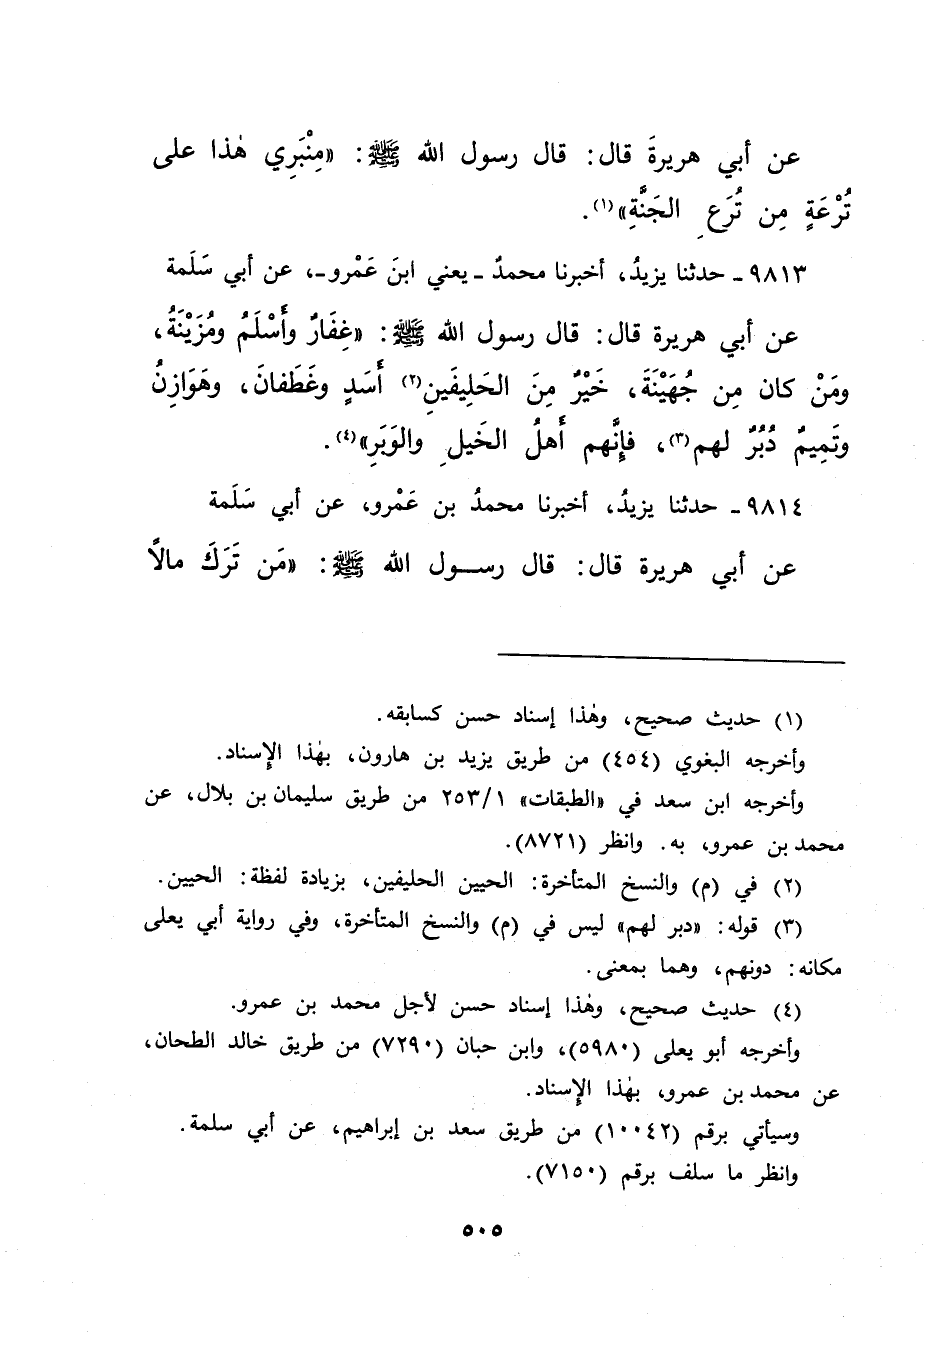 عن أبي هريرةَ قال: قال رسول الله ﷺ: «مِنْبَرِي هٰذا على
تُرْعَةٍ مِن تُرَعِ الجَنَّةِ»(١).
٩٨١٣ـ حدثنا يزيدُ، أخبرنا محمدٌ ـ يعني ابنَ عَمْرو ـ، عن أبي سَلَمة
عن أبي هريرة قال: قال رسول الله ﷺ: «غِفَارٌ وأَسْلَمُ ومُزَيْنَةُ،
ومَنْ كان مِن جُهَيْنَةَ، خَيْرٌ مِنَ الحَلِيفَينِ(٢) أَسَدٍ وغَطَفانَ، وهَوَازِنُ
وتَمِيمٌ دُبُرٌ لهم(٣)، فإنَّهم أَهلُ الخَيلِ والوَبَرِ»(٤).
٩٨١٤ـ حدثنا يزيدُ، أخبرنا محمدُ بن عَمْرو، عن أبي سَلَمة
عن أبي هريرة قال: قال رســول الله ﷺ: «مَن تَرَكَ مالاً
(١) حديث صحيح، وهٰذا إسناد حسن كسابقه.
وأخرجه البغوي (٤٥٤) من طريق يزيد بن هارون، بهٰذا الإسناد.
وأخرجه ابن سعد في «الطبقات» ٢٥٣/١ من طريق سليمان بن بلال، عن
محمد بن عمرو، به. وانظر (٨٧٢١).
(٢) في (م) والنسخ المتأخرة: الحيين الحليفين، بزيادة لفظة: الحيين.
(٣) قوله: «دبر لهم» ليس في (م) والنسخ المتأخرة، وفي رواية أبي يعلى
مكانه: دونهم، وهما بمعنى.
(٤) حديث صحيح، وهٰذا إسناد حسن لأجل محمد بن عمرو.
وأخرجه أبو يعلى (٥٩٨٠)، وابن حبان (٧٢٩٠) من طريق خالد الطحان،
عن محمد بن عمرو، بهٰذا الإسناد.
وسيأتي برقم (١٠٠٤٢) من طريق سعد بن إبراهيم، عن أبي سلمة.
وانظر ما سلف برقم (٧١٥٠).
٥٠٥